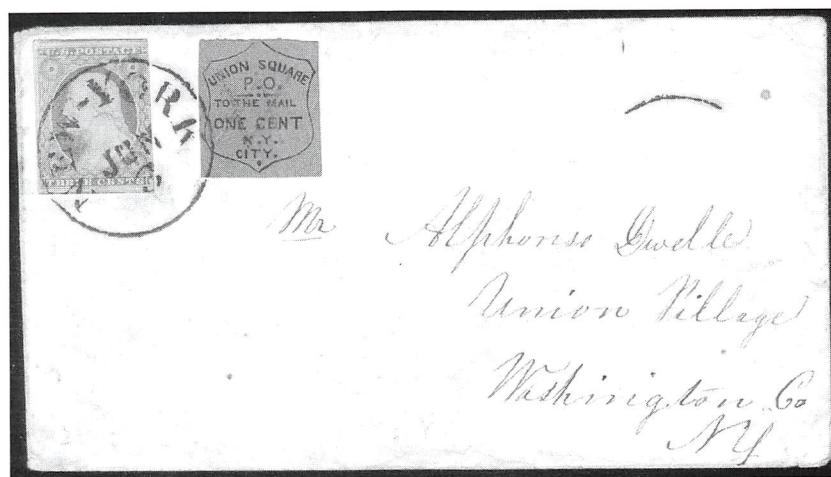 U.S. POSTAGE
THREE CENTS
NEW-YORK
JUN
UNION SQUARE
P.O.
TO THE MAIL
ONE CENT
N.Y.
CITY.
Mr Alphonso Dwelle
Union Village
Washington Co
NY